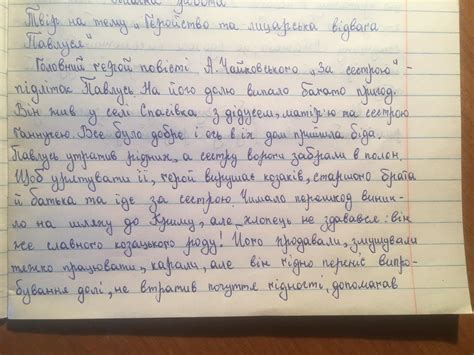 робота
Твір на тему „Геройство та лицарська відвага
Павлуся"
Головний герой повісті А. Чайковського „За сестрою" -
підліток Павлусь. На його долю випало багато пригод.
Він жив у селі Спасівка з дідусем, матір'ю та сестрою
Ганнусею. Все було добре і ось в їх дом прийшла біда.
Павлусь утратив рідних, а сестру вороги забрали в полон.
Щоб урятувати її, герой вирушає козаків, старшого брата
й батька та їде за сестрою. Чимало перешкод виник-
ло на шляху до Криму, але хлопець не здавався: він
же славного козацького роду! Його продавали, змушували
тяжко працювати, карали, але він гідно переніс випро-
бування долі, не втратив почуття гідності, допомагав